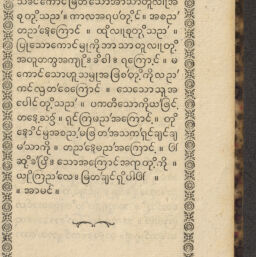 သခင်ကောင်းမြတ်သောအာသာတူလူအ
စုတို့သည်။ ကာလအရပ်တိုင်၊ အစည်
တည်နေကြောင်း ။ ထိုလူစုတို့သည်။
ပြုသောကောင်းမှုကိုဘာသာတူလူတို့
အယူတကွအကျိုးခံဝါ။ ရကြောင့်၊ မ
ကောင်းသောဟူသမျှအဖြစ်တို့ကိုလည်
ကင်လွတ်စေကြောင်၊ သေသောသူအ
ပေါင်တို့သည်၊ ပကတိသောကိုယ်ဖြင့်
တနေ့သ၌ ။ ရှင်ကြမည်အကြောင့်၊ တို
နောင်မှအစည်မပြတ်အသက်ရှင်ချင်ချ
မ်သာကို ။ တည်နေမည်အကြောင့် ။ ဝါ
ဆိုခဲ့ပြီး သောအကြောင်အရာတို့ကို ။
ယုံကြည်လေး မြတ်ချင်ရှိပါဝါ ။
။ အာမင် ။